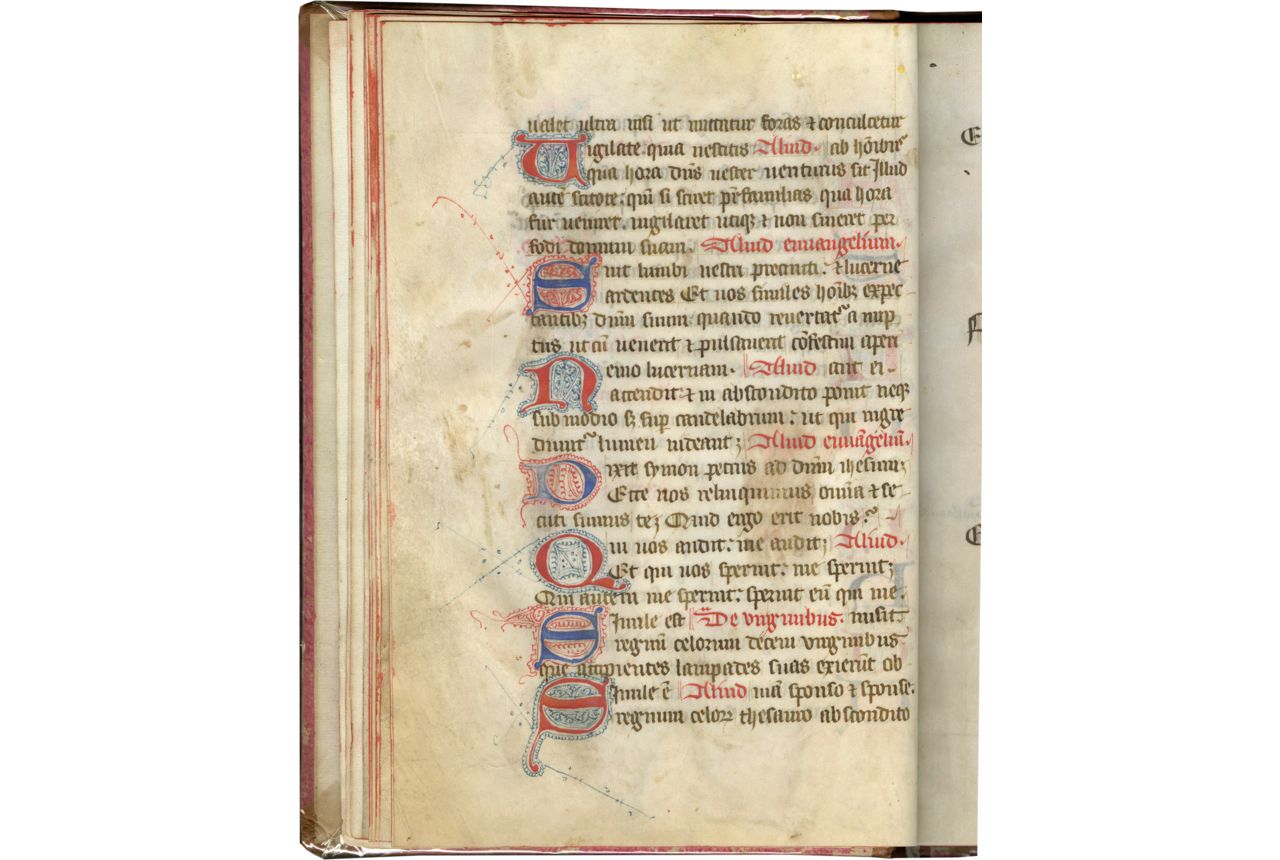 ualet ultra nisi ut mittatur foras ⁊ conculcetur
Uigilate quia nescitis Aliud. ab hōībꝰ
qua hora dn̄s uester uenturus sit Illud
autē scitote: qm̄ si sciret pr̄familias qua hora
fur ueniret. uigilaret utiqꝫ ⁊ non sineret per
fodi domum suam. Aliud euuangelium.
Sint lumbi uestri precincti. ⁊ lucerne
ardentes Et uos similes hōībꝫ expec
tantibꝫ dn̄m suum. quando reuertatᷣ a nup
tiis ut cū uenerit ⁊ pulsauerit cōfestim aperi
Nemo lucernam. Aliud ant ei
accendit ⁊ in abscondito ponit neqꝫ
sub modio sꝫ sup̄ candelabrum: ut qui ingre
diuntᷣ lumen uideant; Aliud euuāgeliū.
Dixit symon petrus ad dn̄m ihesum;
Ecce nos relinquimus omīa ⁊ se
cuti sumus te; Quid ergo erit nobis.
Qui uos audit: me audit; Aliud.
Et qui uos spernit: me spernit;
Qui autem me spernit: spernit eū qui me.
Simile est De uirginibus. misit.
regnū celorum decem uirginibus
que accipientes lampades suas exierūt ob
Simile ē Aliud uiā sponso ⁊ sponse.
regnum celoꝝ thesauro abscondito
E
E